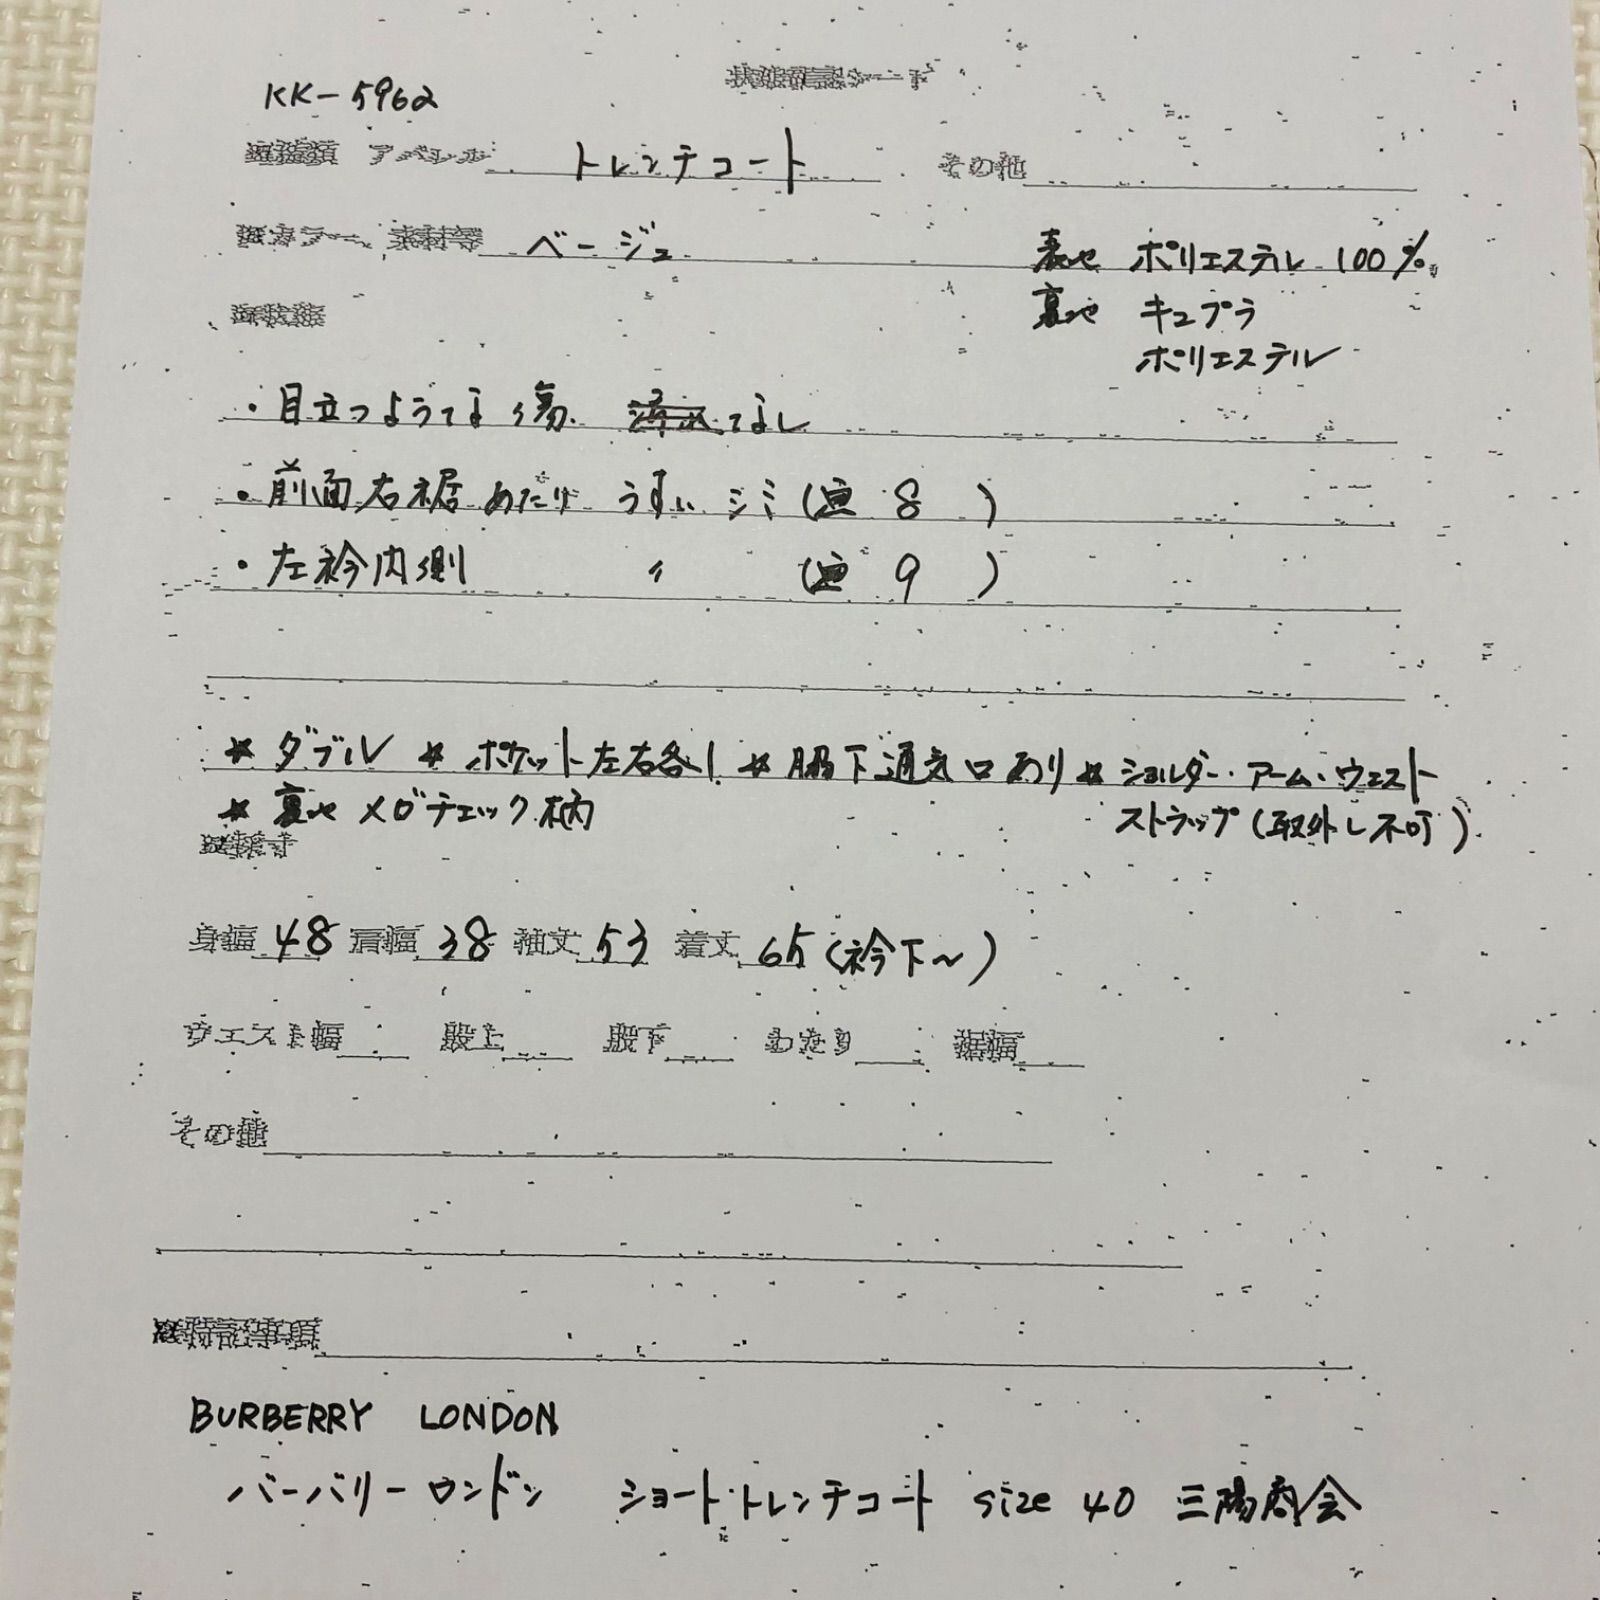 状態確認シート
KK-5962
アパレル トレンチコート その他
カラー、素材等 ベージュ 表地 ポリエステル 100%
裏地 キュプラ
ポリエステル
・目立つような傷、なし
・前面右裾あたり うすい シミ(画 8 )
・左衿内側 〃 (画 9 )
* ダブル * ポケット左右各1 * 脇下通気口あり * ショルダー・アーム・ウエスト
* 裏地 メガチェック柄 ストラップ(取外し不可)
身幅 48 肩幅 38 袖丈 53 着丈 65(衿下~)
ウエスト幅 股上 股下 わたり 裾幅
その他
特記事項
BURBERRY LONDON
バーバリーロンドン ショート・トレンチコート size 40 三陽商会